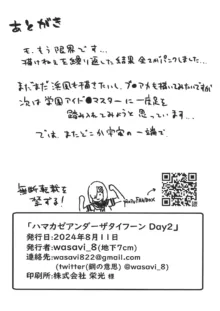 あとがき
も、もう限界です…
描けねぇを繰り返した結果 全てがパンクしました…
まだまだ浜風も描きたいし、ブ●アカも描いてみたいですが
次は学園アイド●マスターに一度足を
踏み入れてみようと思っています…
では、またどこか宇宙の一編で
無断転載を
禁ずる!
FANBOX
「ハマカゼアンダーザタイフーン Day2」
発行日:2024年8月11日
発行者:wasavi_8(地下7cm)
連絡先:wasavi822@gmail.com
(twitter(鋼の意思) @wasavi_8)
印刷所:株式会社 栄光 様